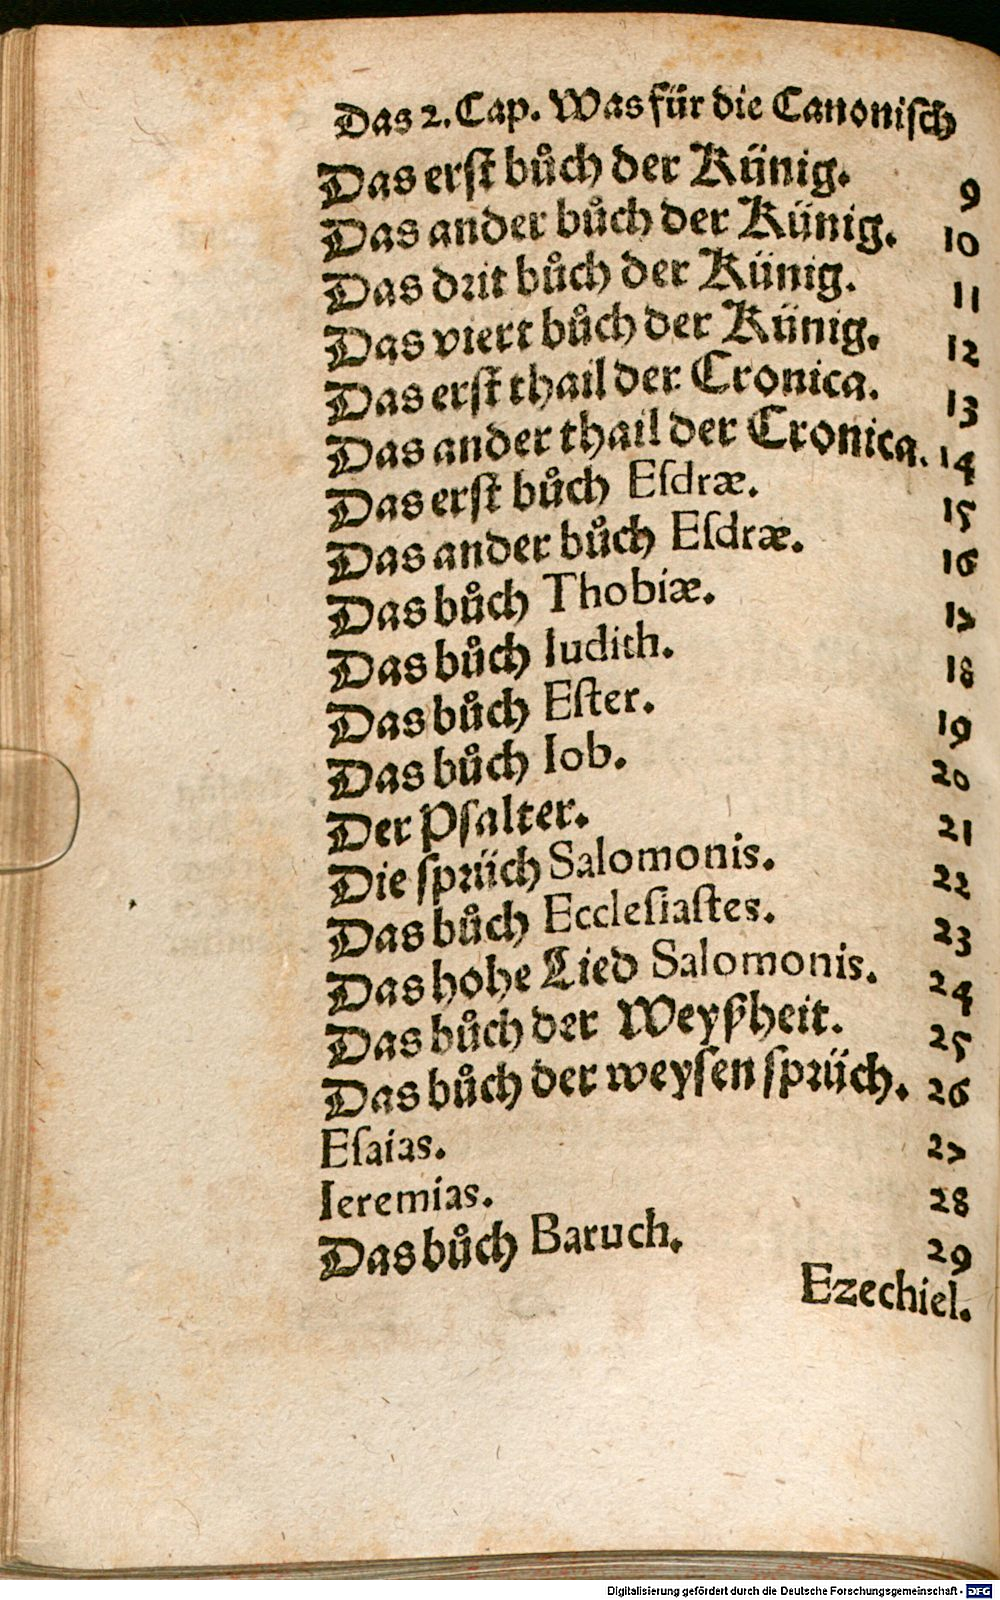 Das 2. Cap. Was für die Canonisch
Das erſt bůch der Künig. 9
Das ander bůch der Künig. 10
Das drit bůch der Künig. 11
Das viert bůch der Künig. 12
Das erſt thail der Cronica. 13
Das ander thail der Cronica. 14
Das erſt bůch Eſdræ. 15
Das ander bůch Eſdræ. 16
Das bůch Thobiæ. 17
Das bůch Iudith. 18
Das bůch Eſter. 19
Das bůch Iob. 20
Der Pſalter. 21
Die ſprüch Salomonis. 22
Das bůch Eccleſiaſtes. 23
Das hohe Lied Salomonis. 24
Das bůch der Weyßheit. 25
Das bůch der weyſen ſprüch. 26
Eſaias. 27
Ieremias. 28
Das bůch Baruch. 29
Ezechiel.
Digitalisierung gefördert durch die Deutsche Forschungsgemeinschaft - DFG